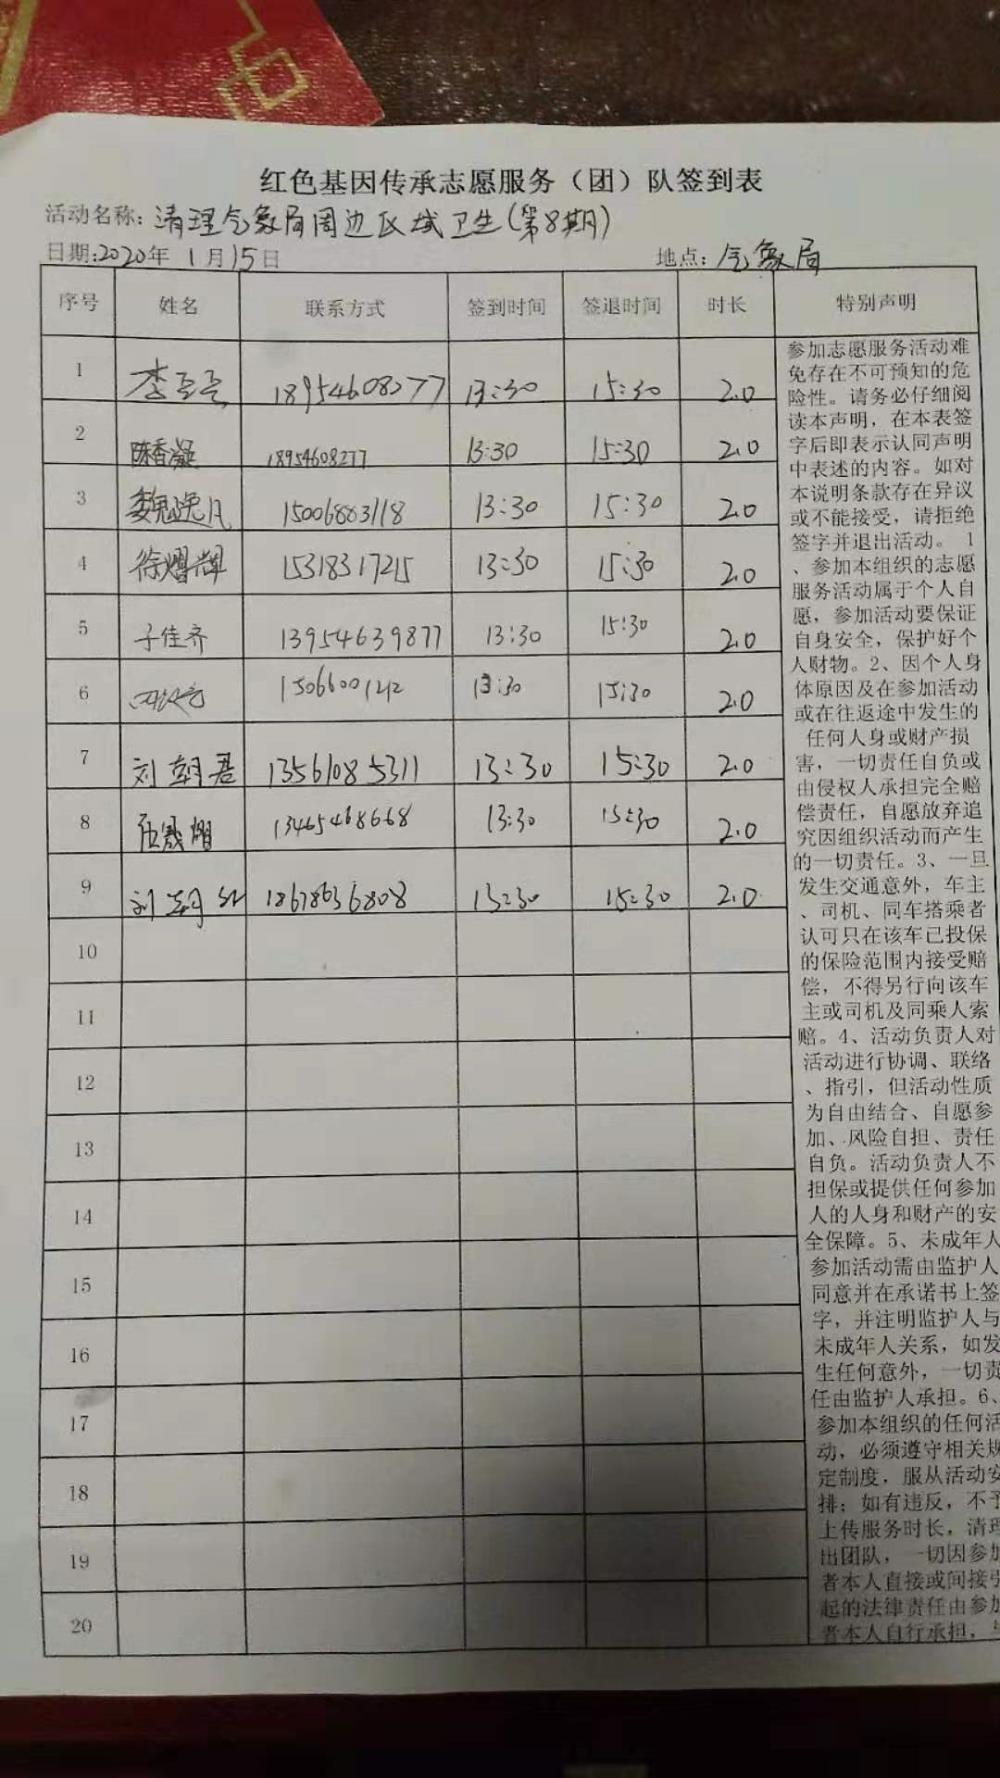 红色基因传承志愿服务（团）队签到表
活动名称：清理气象局周边区域卫生(第8期)
日期：2020年 1月15日 地点：气象局
序号 姓名 联系方式 签到时间 签退时间 时长 特别声明
1 18954608277 13:30 15:30 2.0
2 陈香凝 18954608277 13:30 15:30 2.0
3 魏逸凡 15006883118 13:30 15:30 2.0
4 徐熠辉 15318317215 13:30 15:30 2.0
5 于佳齐 13954639877 13:30 15:30 2.0
6 13:30 15:30 2.0
7 刘朝君 13561085311 13:30 15:30 2.0
8 13465468668 13:30 15:30 2.0
9 刘朝 18678636808 13:30 15:30 2.0
10
11
12
13
14
15
16
17
18
19
20
参加志愿服务活动难
免存在不可预知的危
险性。请务必仔细阅
读本声明，在本表签
字后即表示认同声明
中表述的内容。如对
本说明条款存在异议
或不能接受，请拒绝
签字并退出活动。 1
、参加本组织的志愿
服务活动属于个人自
愿，参加活动要保证
自身安全，保护好个
人财物。2、因个人身
体原因及在参加活动
或在往返途中发生的
任何人身或财产损
害，一切责任自负或
由侵权人承担完全赔
偿责任，自愿放弃追
究因组织活动而产生
的一切责任。3、一旦
发生交通意外，车主
、司机、同车搭乘者
认可只在该车已投保
的保险范围内接受赔
偿，不得另行向该车
主或司机及同乘人索
赔。4、活动负责人对
活动进行协调、联络
、指引，但活动性质
为自由结合、自愿参
加、风险自担、责任
自负。活动负责人不
担保或提供任何参加
人的人身和财产的安
全保障。5、未成年人
参加活动需由监护人
同意并在承诺书上签
字，并注明监护人与
未成年人关系，如发
生任何意外，一切责
任由监护人承担。6、
参加本组织的任何活
动，必须遵守相关规
定制度，服从活动安
排；如有违反，不予
上传服务时长，清理
出团队，一切因参加
者本人直接或间接引
起的法律责任由参加
者本人自行承担，